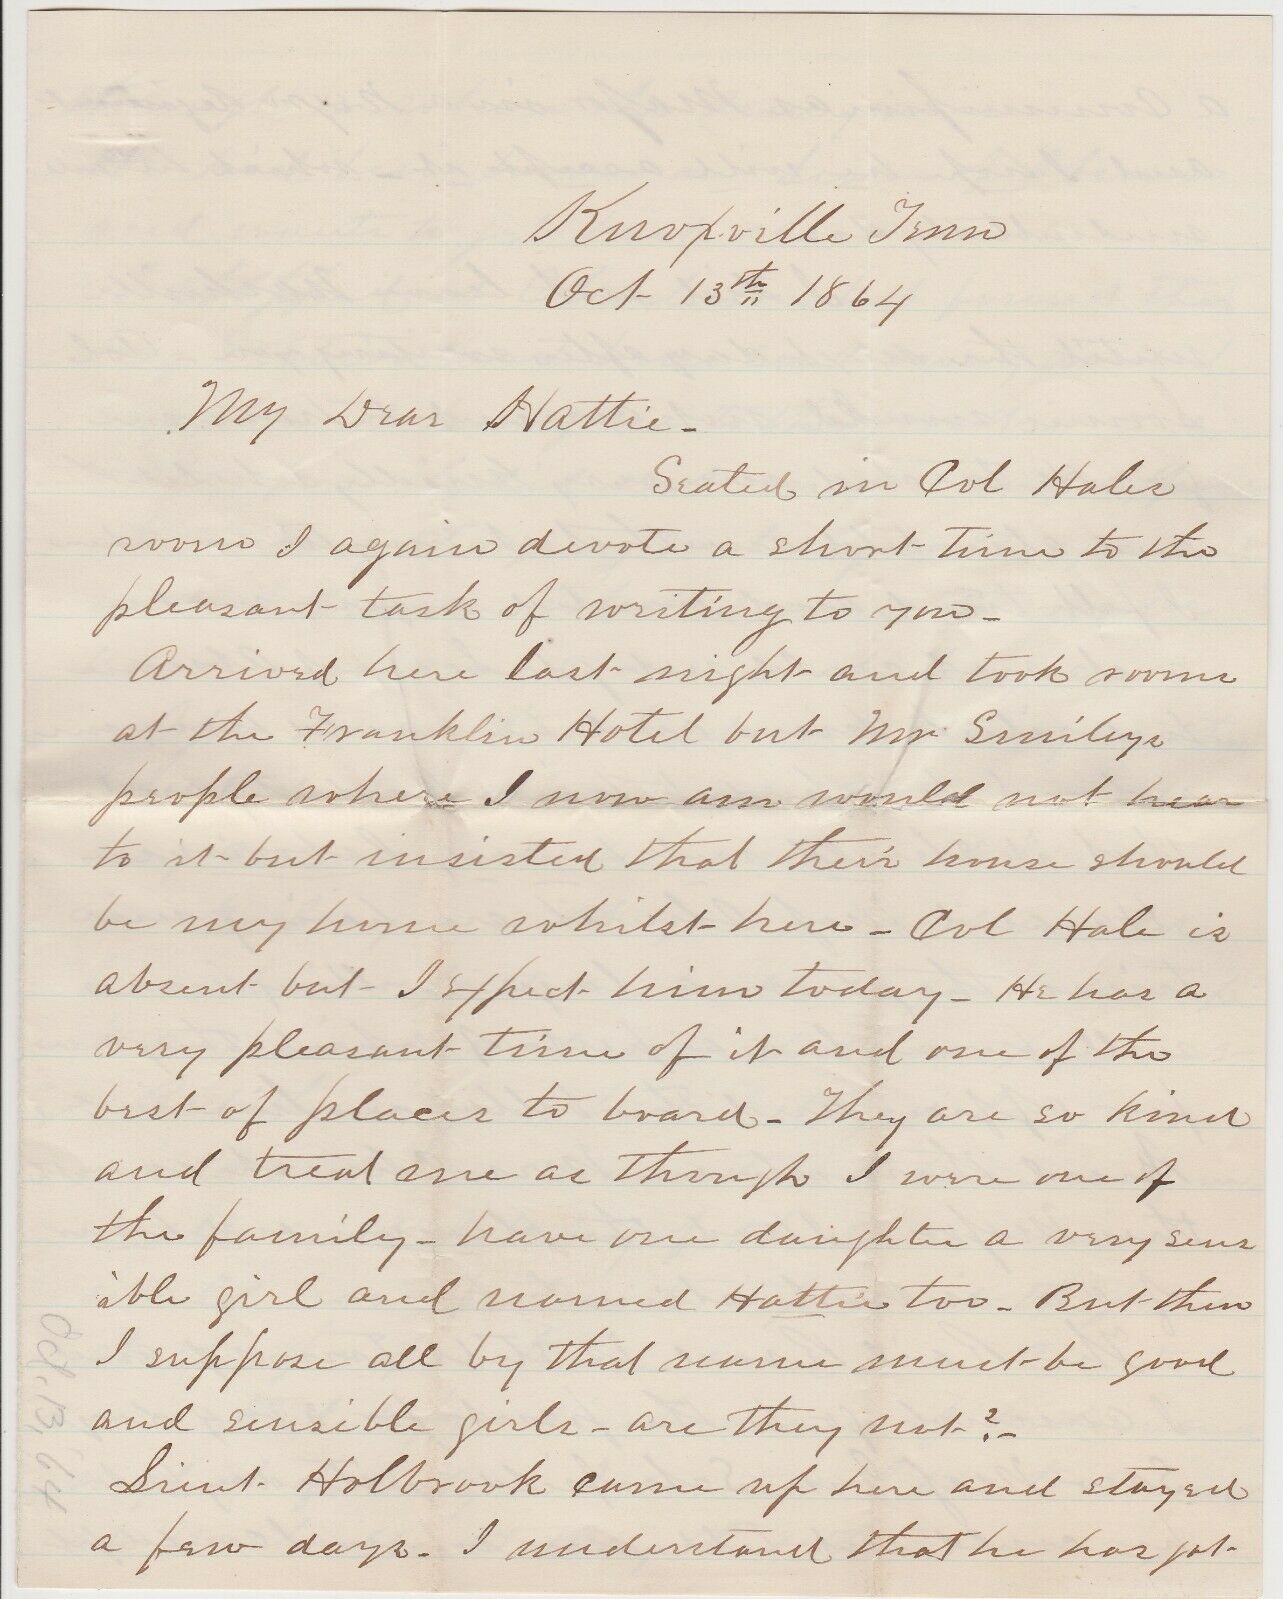 Knoxville Tenn
Oct 13th 1864
My Dear Hattie -
Seated in Col Hales
room I again devote a short time to the
pleasant task of writing to you -
Arrived here last night and took rooms
at the Franklin Hotel but Mr Smileys
people where I now am would not hear
to it but insisted that their house should
be my home whilst here - Col Hale is
absent but I expect him today - He has a
very pleasant time of it and one of the
best of places to board - They are so kind
and treat me as though I were one of
the family - have one daughter a very sens
ible girl and named Hattie too - But then
I suppose all by that name must be good
and sensible girls - are they not? -
Lieut Holbrook came up here and stayed
a few days - I understand that he has got
Oct. 13, 64